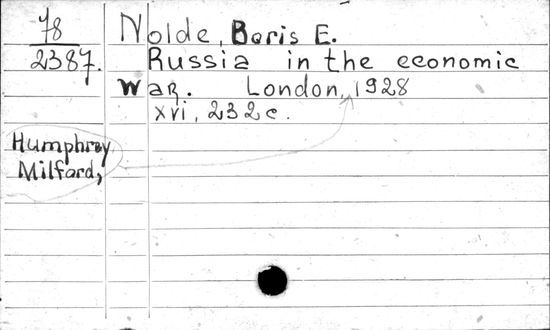 78
2387.
Nolde, Boris E.
Russia in the economic
war. London, 1928
xvi, 232 c.
Humphrey
Milford,